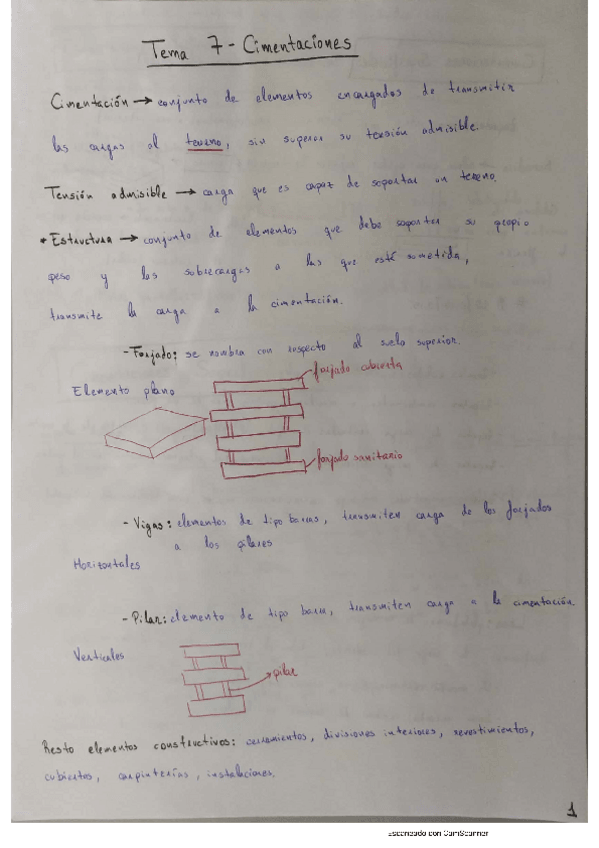 Tema 7 - Cimentaciones
Cimentación → conjunto de elementos encargados de transmitir
las cargas al terreno, sin superar su tensión admisible.
Tensión admisible → carga que es capaz de soportar un terreno.
* Estructura → conjunto de elementos que debe soportar su propio
peso y las sobrecargas a las que esté sometida,
transmite la carga a la cimentación.
- Forjado: se nombra con respecto al suelo superior.
forjado cubierta
Elemento plano
forjado sanitario
- Vigas: elementos de tipo barras, transmiten carga de los forjados
a los pilares
Horizontales
- Pilar: elemento de tipo barra, transmiten carga a la cimentación.
Verticales
pilar
Resto elementos constructivos: cerramientos, divisiones interiores, revestimientos,
cubiertas, carpinterías, instalaciones.
1
Escaneado con CamScanner